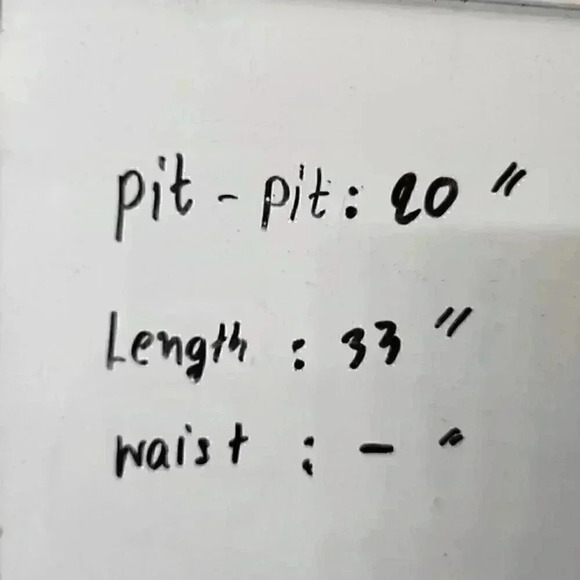 pit - pit: 20 "
Length : 33 "
waist : - "